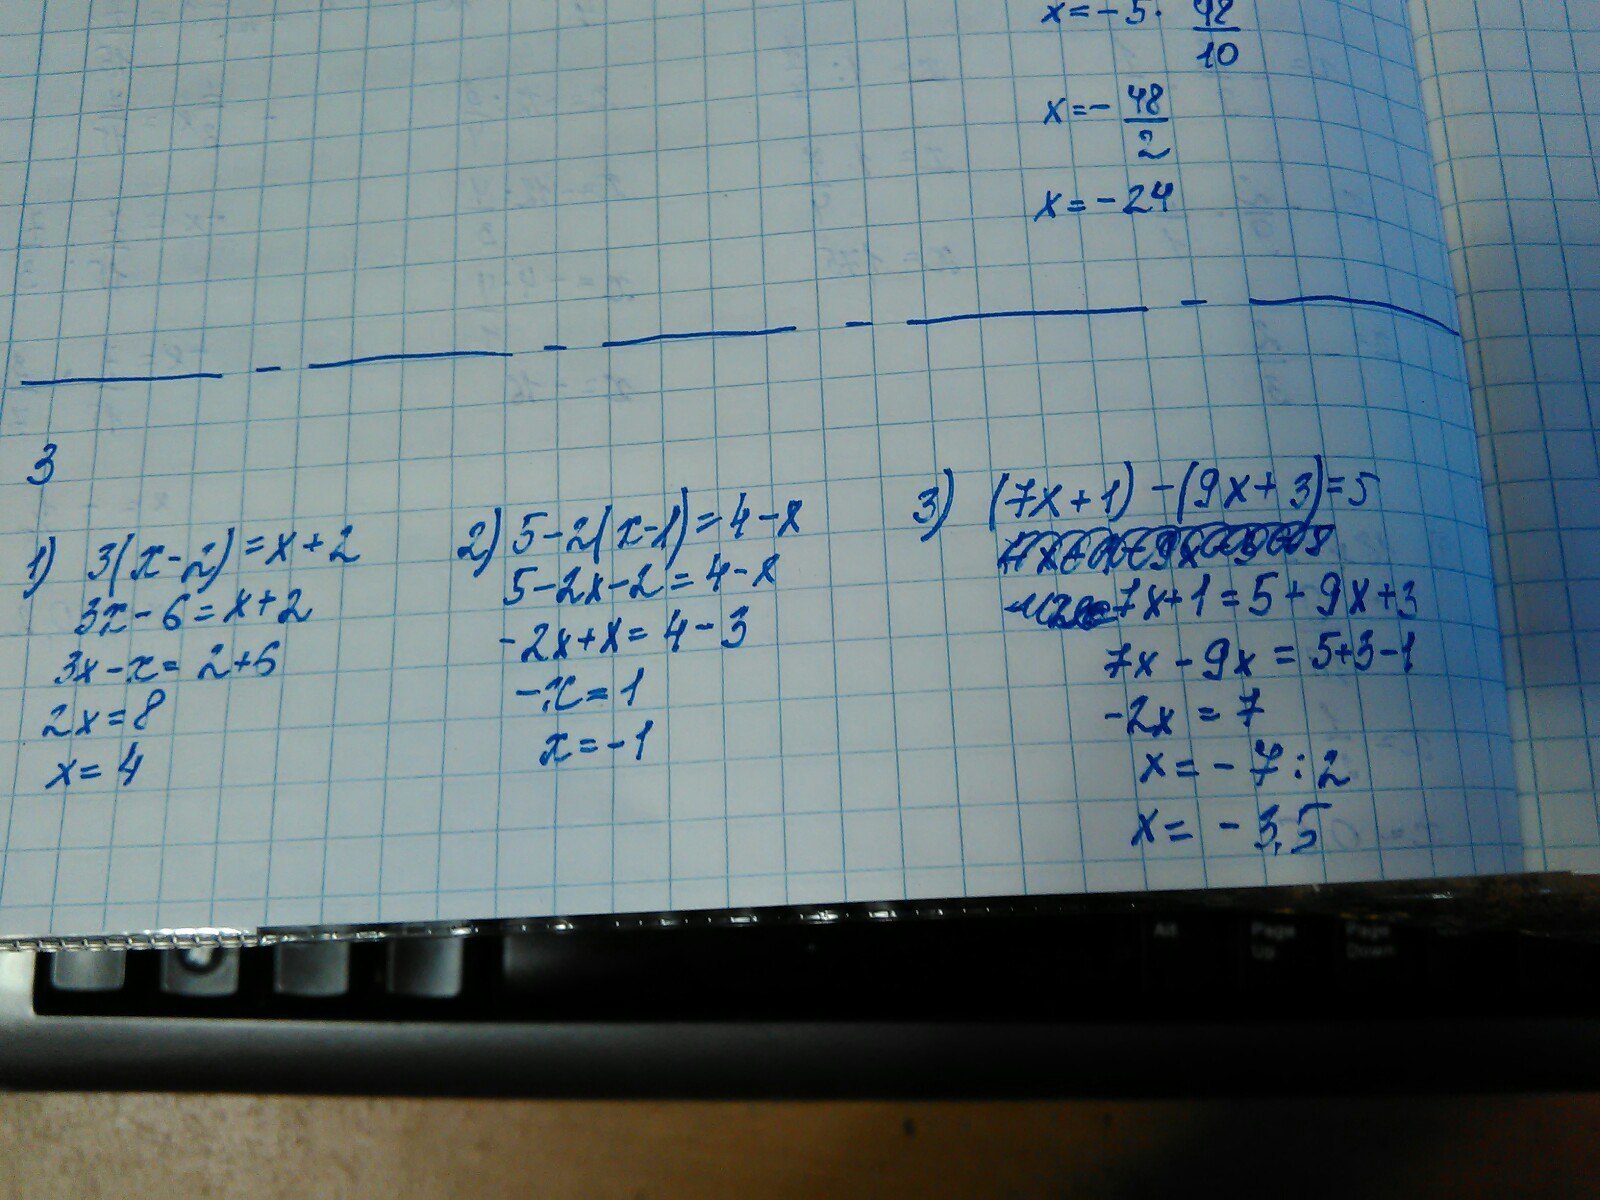 x = - 5 · 42/10
x = - 48/2
x = - 24
3
1) 3(x-2) = x+2
3x - 6 = x+2
3x - x = 2+6
2x = 8
x = 4
2) 5-2(x-1) = 4-x
5-2x-2 = 4-x
-2x+x = 4-3
-x = 1
x = -1
3) (7x+1) - (9x+3) = 5
7x+1 = 5+9x+3
7x - 9x = 5+3-1
-2x = 7
x = - 7 : 2
x = - 3,5
Alt
Page Up
Page Down